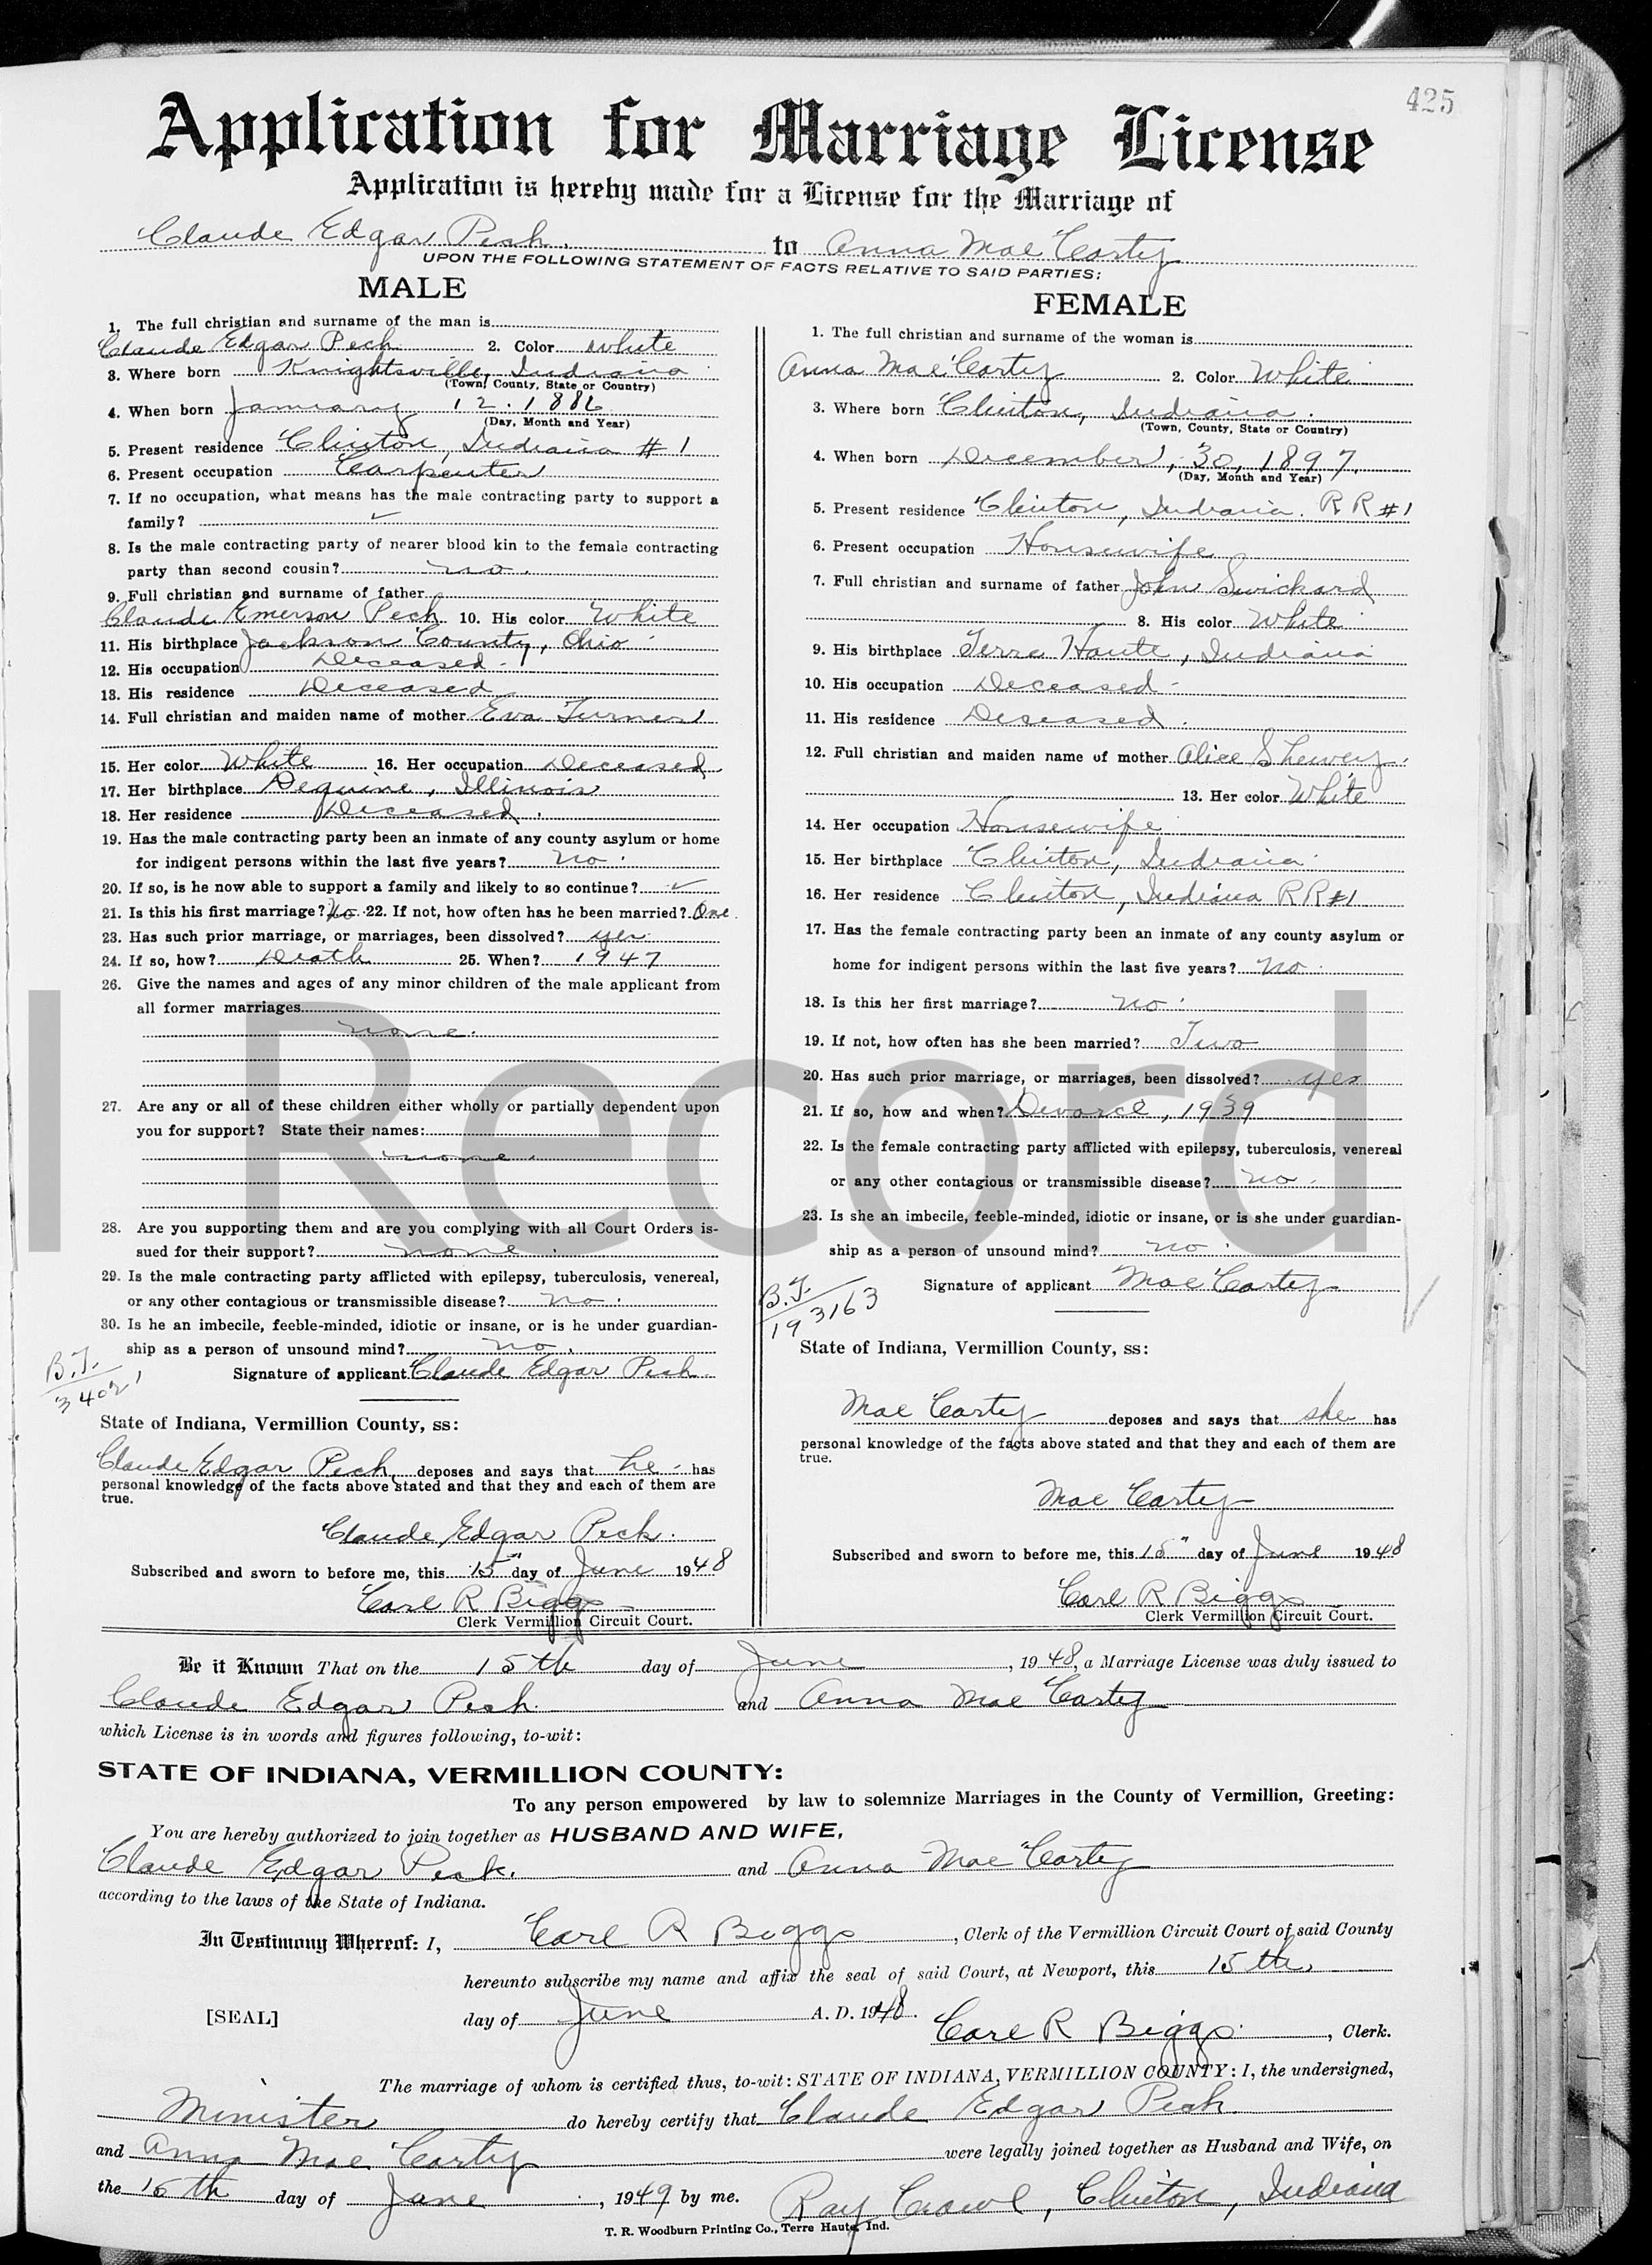 425
Application for Marriage License
Application is hereby made for a License for the Marriage of
Claude Edgar Peck. to Anna Mae Carty
UPON THE FOLLOWING STATEMENT OF FACTS RELATIVE TO SAID PARTIES:
MALE
1. The full christian and surname of the man is
Claude Edgar Peck 2. Color White
3. Where born Knightsville, Indiana
(Town, County, State or Country)
4. When born January 12. 1886
(Day, Month and Year)
5. Present residence Clinton, Indiana # 1
6. Present occupation Carpenter
7. If no occupation, what means has the male contracting party to support a
family? ✓
8. Is the male contracting party of nearer blood kin to the female contracting
party than second cousin? no.
9. Full christian and surname of father
Claude Emerson Peck 10. His color White
11. His birthplace Jackson County, Ohio
12. His occupation Deceased
13. His residence Deceased
14. Full christian and maiden name of mother Eva Turner
15. Her color White 16. Her occupation Deceased
17. Her birthplace Illinois
18. Her residence Deceased.
19. Has the male contracting party been an inmate of any county asylum or home
for indigent persons within the last five years? no.
20. If so, is he now able to support a family and likely to so continue? ✓
21. Is this his first marriage? No. 22. If not, how often has he been married? One
23. Has such prior marriage, or marriages, been dissolved? yes
24. If so, how? Death 25. When? 1947
26. Give the names and ages of any minor children of the male applicant from
all former marriages
none.
27. Are any or all of these children either wholly or partially dependent upon
you for support? State their names:
none.
28. Are you supporting them and are you complying with all Court Orders is-
sued for their support? none.
29. Is the male contracting party afflicted with epilepsy, tuberculosis, venereal,
or any other contagious or transmissible disease? no.
30. Is he an imbecile, feeble-minded, idiotic or insane, or is he under guardian-
ship as a person of unsound mind? no.
B.T.
Signature of applicant Claude Edgar Peck
State of Indiana, Vermillion County, ss:
Claude Edgar Peck deposes and says that he has
personal knowledge of the facts above stated and that they and each of them are
true.
Claude Edgar Peck.
Subscribed and sworn to before me, this 15" day of June 1948
Carl R Biggs
Clerk Vermillion Circuit Court.
FEMALE
1. The full christian and surname of the woman is
Anna Mae Carty 2. Color White
3. Where born Clinton, Indiana.
(Town, County, State or Country)
4. When born December, 30, 1897.
(Day, Month and Year)
5. Present residence Clinton, Indiana. R R #1
6. Present occupation Housewife
7. Full christian and surname of father John Swickard
8. His color White
9. His birthplace Terre Haute, Indiana
10. His occupation Deceased
11. His residence Deseased.
12. Full christian and maiden name of mother Alice Shewey.
13. Her color White
14. Her occupation Housewife
15. Her birthplace Clinton, Indiana
16. Her residence Clinton, Indiana RR#1
17. Has the female contracting party been an inmate of any county asylum or
home for indigent persons within the last five years? no.
18. Is this her first marriage? no.
19. If not, how often has she been married? Two
20. Has such prior marriage, or marriages, been dissolved? yes
21. If so, how and when? Divorce, 1939
22. Is the female contracting party afflicted with epilepsy, tuberculosis, venereal
or any other contagious or transmissible disease? no.
23. Is she an imbecile, feeble-minded, idiotic or insane, or is she under guardian-
ship as a person of unsound mind? no.
Signature of applicant Mae Carty
B.T.
19 3163
State of Indiana, Vermillion County, ss:
Mae Carty deposes and says that she has
personal knowledge of the facts above stated and that they and each of them are
true.
Mae Carty
Subscribed and sworn to before me, this 15" day of June 1948
Carl R Biggs
Clerk Vermillion Circuit Court.
Be it Known That on the 15th day of June, 1948, a Marriage License was duly issued to
Claude Edgar Peck. and Anna Mae Carty
which License is in words and figures following, to-wit:
STATE OF INDIANA, VERMILLION COUNTY:
To any person empowered by law to solemnize Marriages in the County of Vermillion, Greeting:
You are hereby authorized to join together as HUSBAND AND WIFE,
Claude Edgar Peck. and Anna Mae Carty
according to the laws of the State of Indiana.
In Testimony Whereof: I, Carl R Biggs, Clerk of the Vermillion Circuit Court of said County
hereunto subscribe my name and affix the seal of said Court, at Newport, this 15th,
[SEAL] day of June A. D. 1948. Carl R Biggs, Clerk.
The marriage of whom is certified thus, to-wit: STATE OF INDIANA, VERMILLION COUNTY: I, the undersigned,
Minister do hereby certify that Claude Edgar Peck.
and Anna Mae Carty were legally joined together as Husband and Wife, on
the 15th day of June, 1949 by me. Ray Crowl, Clinton, Indiana
T. R. Woodburn Printing Co., Terre Haute, Ind.
Record